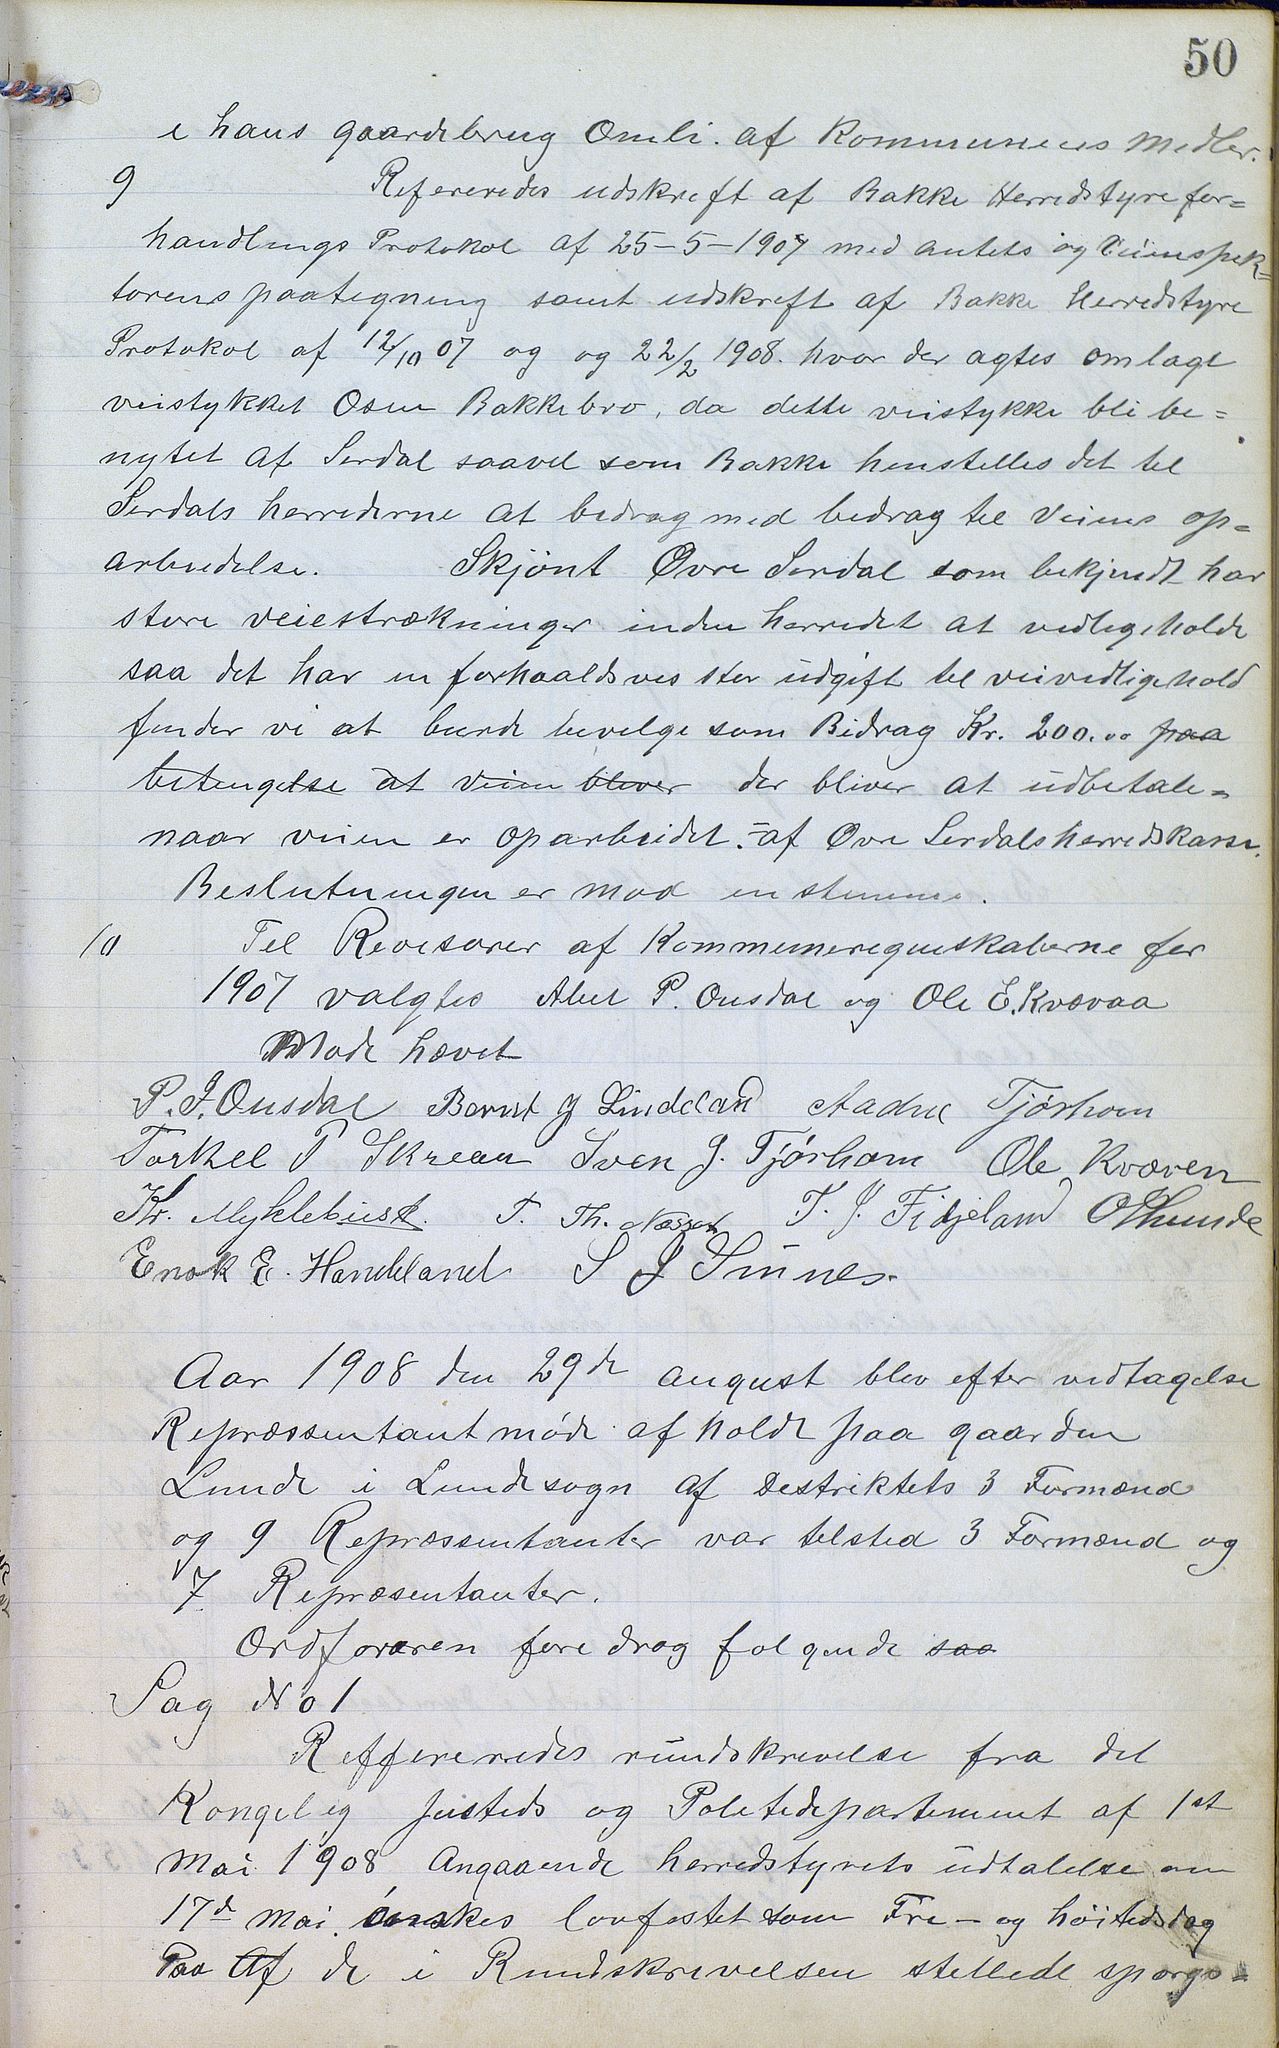 50
i hans gaardsbrug Omli. af Kommunens Midler.
9 Refereredes udskrift af Bakke Herredstyrefor=
handlings Protokol af 25-5-1907 med antets og Veiinspek-
torens paategning samt udskrift af Bakke Herredstyre
Protokol af 12/10 07 og og 22/2 1908. hvor der agtes omlagt
veistykket Osen Bakkebro, da dette veistykke bli be=
nytet af Serdal saavel som Bakke henstelles det til
Serdals herrederne at bedrag med bedrag til Veiens op=
arbeidelse. Skjönt Øvre Serdal som bekjendt har
store veiestrækninger inden herredet at vedligeholde
saa det har en forhaaldsves stor udgift til veivedligehold
finder vi at burde bevelge som Bidrag Kr. 200.00 paa
betengelse at Veien bliver der bliver at udbetale=
naar veien er oparbeidet. - af Øvre Serdals herredskasse.
Beslutningen er mod en stemme.
10 Til Revisorer af Kommuneregnskaberne for
1907 valgtes Abel P. Ousdal og Ole E. Kvævaa
Møde hævet
P. J. Ousdal Bernt J Lindeland Aadne Tjørhom
Torkel P Skreaa Sven J. Tjørhom Ole Kvæven
Kr. Myklebust. T. Th. Nesset T. J. Fidjeland O Lunde
Enok E. Handeland S J Sinnes.
Aar 1908 den 29de august blev efter vedtagelse
Repræssentantmøde afholdt paa gaarden
Lunde i Lundesogn af Destriktets 3 Formænd
og 9 Repræssentanter var telsted 3 Formænd og
7 Repræsentanter.
Ordføraren fore drog følgende saa
Sag No 1
Reffereredes rundskrevelse fra det
Kongelig Justeds og Politidepartement af 1st
Mai 1908 Angaaende herredstyrets udtalelse om
17d Mai ønskes lovfestet som Fri- og høitedsdag
Paa Af de i Rundskrevelsen stellede spørgs=